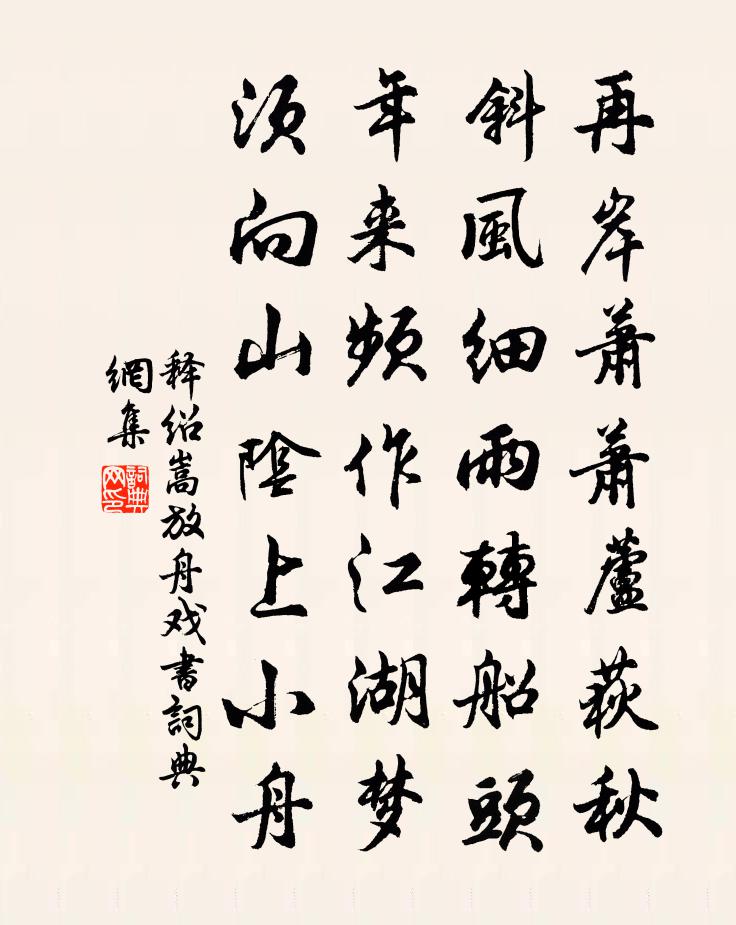 再岸蕭蕭蘆荻秋
斜風細雨轉船頭
年来頻作江湖梦
須向山陰上小舟
释绍嵩放舟戏書詞典
網集
詞典
网印